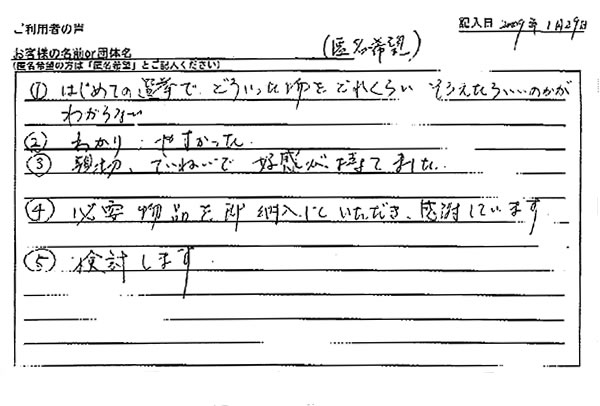 ご利用者の声
記入日 2009年1月29日
お客様の名前or団体名
(匿名希望の方は「匿名希望」とご記入ください)
(匿名希望)
① はじめての選挙で、どういった物をどれくらい そろえたらいいのかが
わからない
② わかりやすかった
③ 親切、ていねいで 好感が持てました
④ 必要物品を即納入していただき、感謝しています
⑤ 検討します